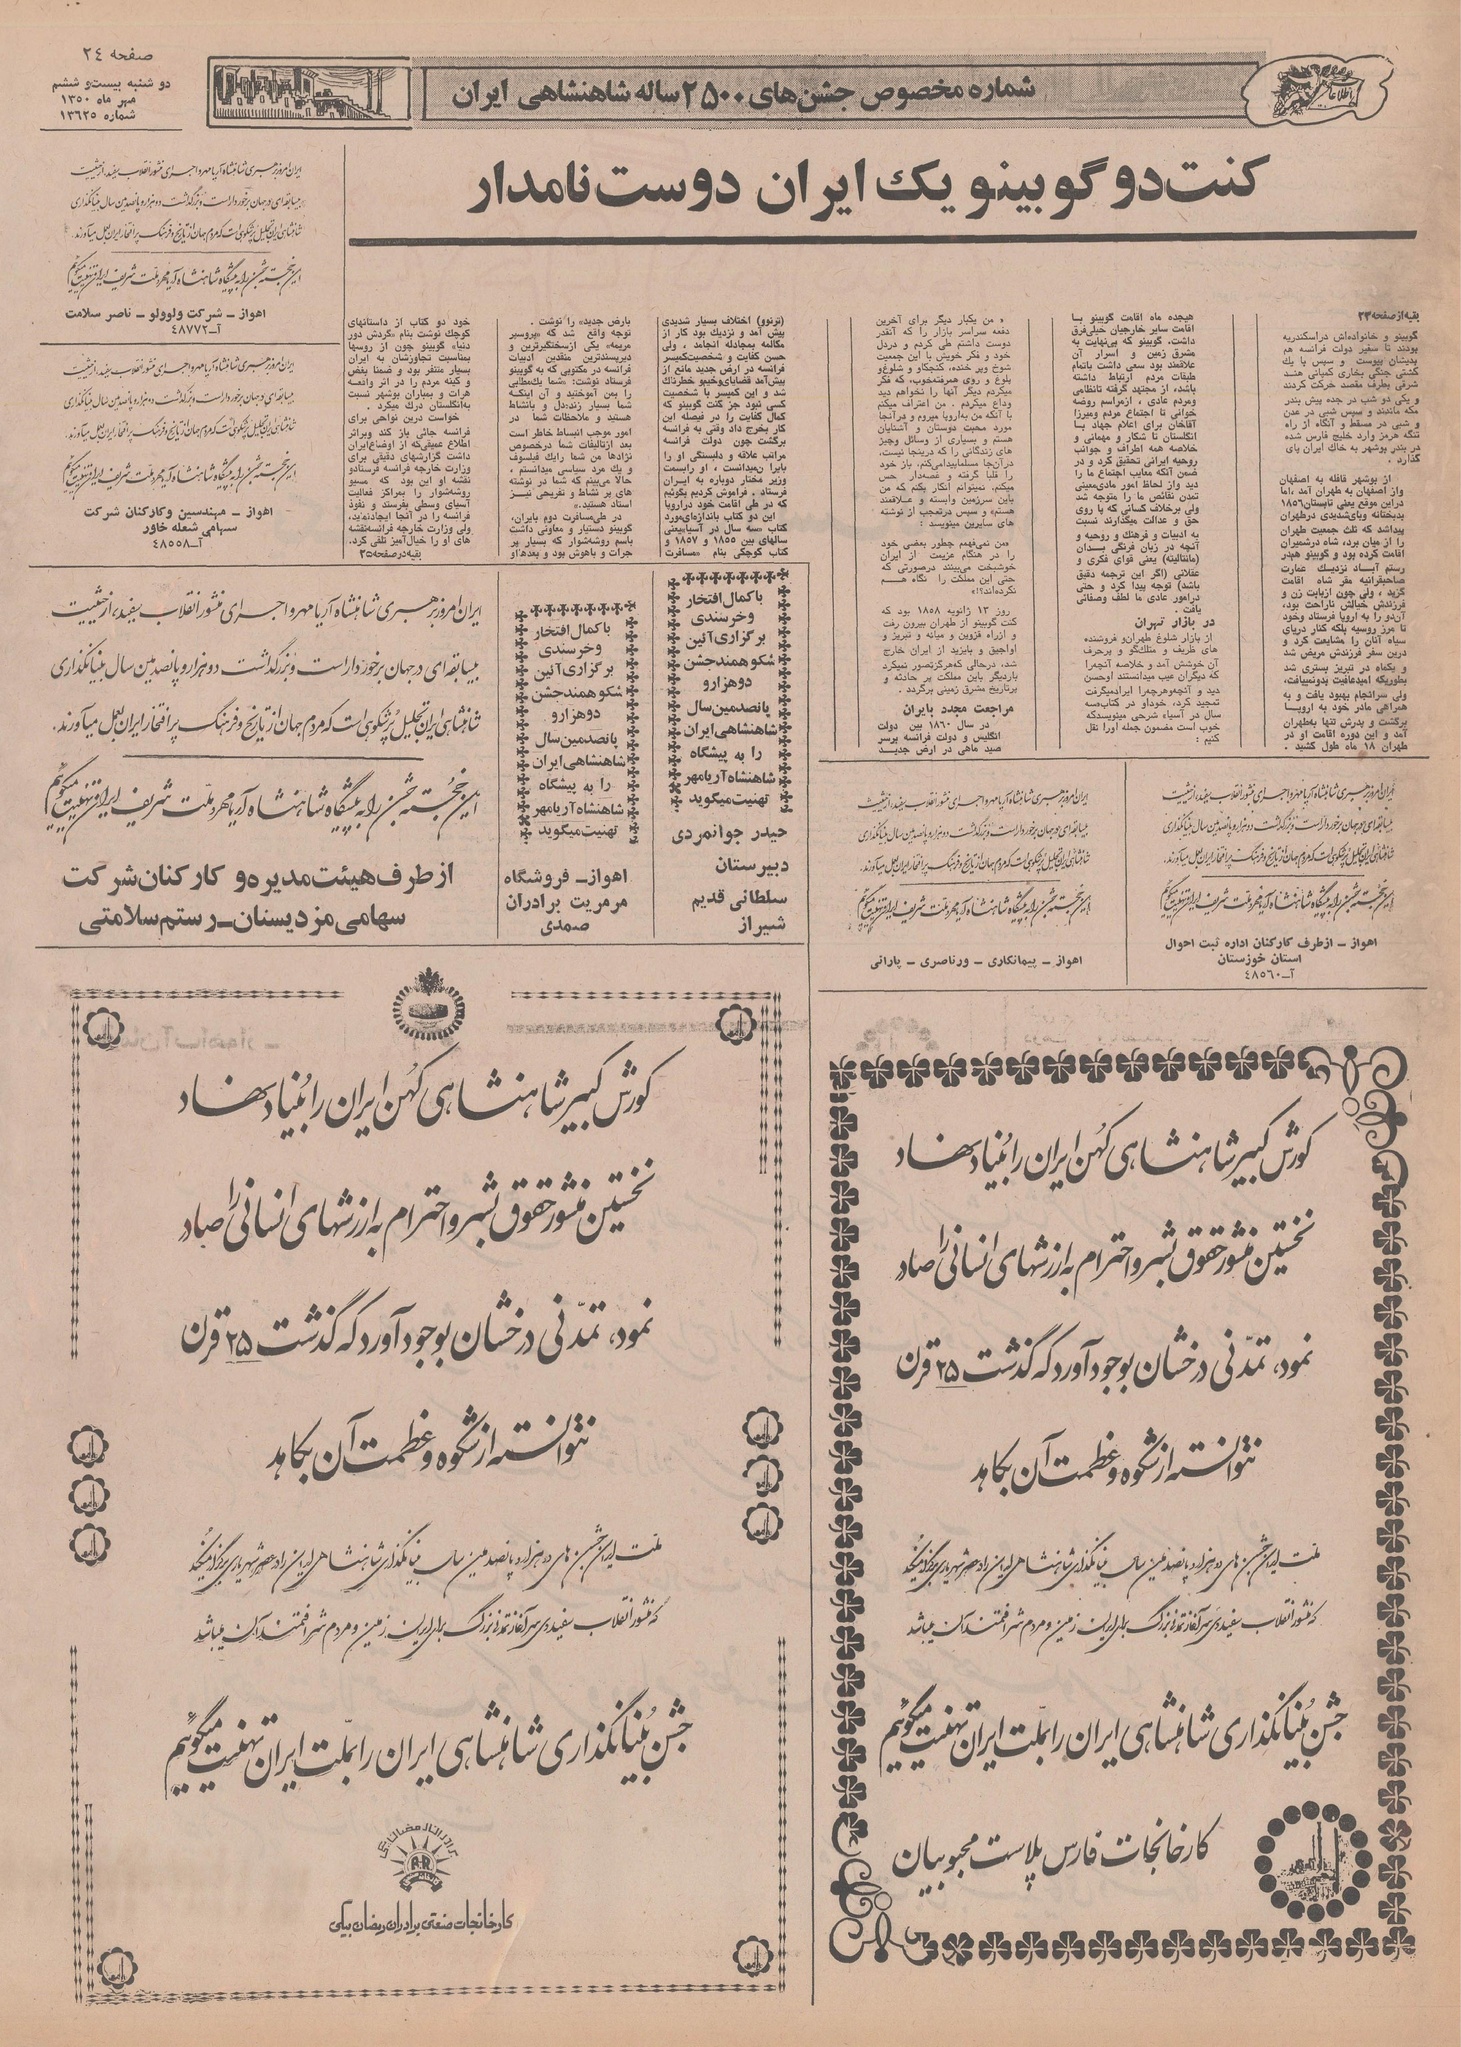 صفحه ۲۴
دو شنبه بیست و ششم
مهر ماه ۱۳۵۰
شماره ۱۳۶۲۵
شماره مخصوص جشن‌های ۲۵۰۰ ساله شاهنشاهی ایران
اطلاعات
کنت دو گوبینو یک ایران دوست نامدار
بقیه از صفحه ۲۳
گوبینو و خانواده‌اش دراسکندریه
بودند تا سفیر دولت فرانسه هم
بدیشان پیوست و سپس با یک
کشتی جنگی بخاری کمپانی هند
شرقی بطرف مقصد حرکت کردند
و یکی دو شب در جده پیش بندر
مکه ماندند و سپس شبی در عدن
و شبی در مسقط و آنگاه از راه
تنگه هرمز وارد خلیج فارس شده
در بندر بوشهر به خاک ایران پای
گذارد .
از بوشهر قافله به اصفهان
واز اصفهان به طهران آمد ،اما
دراین موقع یعنی تابستان ۱۸۵۶
بدبختانه وبای‌شدیدی درطهران
پیداشد که ثلث جمعیت طهران
را از میان برد، شاه درشمیران
اقامت کرده بود و گوبینو هم‌در
رستم آباد نزدیک عمارت
صاحبقرانیه مقر شاه اقامت
گزید ، ولی چون ازبابت زن و
فرزندش خیالش ناراحت بود،
آن‌دو را به اروپا فرستاد وخود
تا مرز روسیه بلکه کنار دریای
سیاه آنان را مشایعت کرد و
درین سفر فرزندش مریض شد
و یکماه در تبریز بستری شد
بطوریکه امیدعافیت بدونمییافت،
ولی سرانجام بهبود یافت و به
همراهی مادر خود به اروپا
برگشت و پدرش تنها به‌طهران
آمد و این دوره اقامت او در
طهران ۱۸ ماه طول کشید .
هیجده ماه اقامت گوبینو با
اقامت سایر خارجیان خیلی‌فرق
داشت. گوبینو که بی‌نهایت به
مشرق زمین و اسرار آن
علاقمند بود سعی داشت باتمام
طبقات مردم ارتباط داشته
باشد، از مجتهد گرفته تانظامی
ومردم عادی ، ازمراسم روضه
خوانی تا اجتماع مردم ومیرزا
آقاخان برای اعلام جهاد با
انگلستان تا شکار و مهمانی و
خلاصه همه اطراف و جوانب
روحیه ایرانی تحقیق کرد و در
ضمن آنکه معایب اجتماع ما را
دید واز لحاظ امور مادی‌معینی
تمدن نقائص ما را متوجه شد
ولی برخلاف کسانی که پا روی
حق و عدالت میگذارند نسبت
به ادبیات و فرهنگ و روحیه و
آنچه در زبان فرنگی بسدان
(مانتالیته) یعنی قوای فکری و
عقلانی (اگر این ترجمه دقیق
باشد) توجه پیدا کرد و حتی
درامور عادی ما لطف وصفائی
یافت .
در بازار تهران
از بازار شلوغ طهران‌و فروشنده
های ظریف و متلک‌گو و پرحرف
آن خوشش آمد و خلاصه آنچه‌را
که دیگران عیب میدانستند اوحسن
دید و آنچه‌وهرچه‌را ایرادمیگرفت
تمجید کرد، خوداو در کتاب‌سه
سال در آسیاء شرحی مینویسدکه
خوب است مضمون جمله اورا نقل
کنیم :
« من یکبار دیگر برای آخرین
دفعه سراسر بازار را که آنقدر
دوست داشتم طی کردم و دردل
خود و فکر خویش با این جمعیت
شوخ وپر خنده، کنجکاو و شلوغ‌و
بلوغ و روی همرفته‌خوب، که فکر
میکردم دیگر آنها را نخواهم دید
وداع میکردم . من اعتراف میکنم
با آنکه من به‌اروپا میروم و درآنجا
مورد محبت دوستان و آشنایان
هستم و بسیاری از وسائل وچیز
های زندگانی را که دراینجا نیست،
درآن‌جا مسلماپیدامی‌کنم، باز خود
را قلبا گرفته و غصه‌دار حس
میکنم، نمیتوانم انکار بکنم که من
باین سرزمین وابسته و علاقمند
هستم» و سپس درتعجب از نوشته
های سایرین مینویسد :
«من نمی‌فهمم چطور بعضی خود
را در هنگام عزیمت از ایران
خوشبخت می‌بینند درصورتی که
حتی این مملکت را نگاه هم
نکرده‌اند؟!»
روز ۱۳ ژانویه ۱۸۵۸ بود که
کنت گوبینو از طهران بیرون رفت
و ازراه قزوین و میانه و تبریز و
اواجیق و بایزید از ایران خارج
شد، درحالی که‌هرگزتصور نمیکرد
باردیگر باین مملکت پر حادثه و
برتاریخ مشرق زمینی برگردد .
مراجعت مجدد بایران
در سال ۱۸۶۰ بین دولت
انگلیس و دولت فرانسه برسر
صید ماهی در ارض جدید
(ترنوو) اختلاف بسیار شدیدی
پیش آمد و نزدیک بود کار از
مکالمه بمجادله انجامد ، ولی
حسن کفایت و شخصیت‌کمیسر
فرانسه در ارض جدید مانع از
پیش‌آمد قضایای‌وخیم‌و خطرناک
شد و این کمیسر با شخصیت
کسی نبود جز کنت گوبینو که
کمال کفایت را در فیصله این
کار بخرج داد وقتی به فرانسه
برگشت چون دولت فرانسه
مراتب علاقه و دلبستگی او را
بایرا ن‌میدانست ، او رابسمت
وزیر مختار دوباره به ایران
فرستاد . فراموش کردیم بگوئیم
که در طی اقامت خود درارویا
این دو کتاب باندازه‌ای‌مورد
کتاب «سه سال در آسیا»یعنی
سالهای بین ۱۸۵۵ و ۱۸۵۷ و
کتاب کوچکی بنام «مسافرت
بارض جدید» را نوشت .
توجه واقع شد که «پروسپر
مریمه» یکی ازسختگیرترین و
دیرپسندترین منقدین ادبیات
فرانسه در مکتوبی که به گوبینو
فرستاد نوشت: «شما یک‌مطلبی
را بمن آموختید و آن اینکه
شما بسیار زنده‌دل و بانشاط
هستید و ملاحظات شما در
امور موجب انبساط خاطر است
بعد ازتالیفات شما درخصوص
نژادها من شما رایک فیلسوف
و یک مرد سیاسی میدانستم ،
حالا می‌بینم که شما در نوشته
های پر نشاط و تفریحی نیز
استاد هستید.»
در طی‌مسافرت دوم بایران،
گوبینو دستیار و معاونی داشت
باسم روشه‌شوار که بسیار پر
جرات و باهوش بود و بعدها او
خود دو کتاب از داستانهای
کوچک نوشت بنام «گردش دور
دنیا» گوبینو چون از روسها
بمناسبت تجاوزشان به ایران
بسیار متنفر بود و ضمنا بغض
و کینه مردم را در اثر واقعه
هرات و بمباران بوشهر نسبت
به‌انگلستان درک میکرد .
خواست درین نواحی برای
فرانسه جائی باز کند وبراثر
اطلاع عمیقی‌که از اوضاع‌ایران
داشت گزارشهای دقیقی برای
وزارت خارجه فرانسه فرستادو
نقشه او این بود که «مسیو
روشه‌شوار را بمراکز فعالیت
آسیای وسطی بفرستد و نفوذ
فرانسه را در آنجا ایجادنماید،
ولی وزارت خارجه فرانسه‌نقشه
های او را خیال‌آمیز تلقی کرد.
بقیه در صفحه ۲۵
ایران امروز برهبری شاهنشاه آریامهر و اجرای منشور انقلاب سفید، از حیثیت
بیسابقه‌ای در جهان برخوردار است و بزرگداشت دو هزار و پانصدمین سال بنیانگذاری
شاهنشاهی ایران تجلیل پرشکوهی است که مردم جهان از تاریخ و فرهنگ پر افتخار ایران بعمل میآورند.
این خجسته جشن را به پیشگاه شاهنشاه آریامهر و ملت شریف ایران تهنیت میگوئیم
اهواز ــ شرکت ولوولو ــ ناصر سلامت
آ-۴۸۷۷۲
ایران امروز برهبری شاهنشاه آریامهر و اجرای منشور انقلاب سفید، از حیثیت
بیسابقه‌ای در جهان برخوردار است و بزرگداشت دو هزار و پانصدمین سال بنیانگذاری
شاهنشاهی ایران تجلیل پرشکوهی است که مردم جهان از تاریخ و فرهنگ پر افتخار ایران بعمل میآورند.
این خجسته جشن را به پیشگاه شاهنشاه آریامهر و ملت شریف ایران تهنیت میگوئیم
اهواز ــ مهندسین وکارکنان شرکت
سهامی شعله خاور
آ-۴۸۵۵۸
باکمال افتخار
وخرسندی
برگزاری آئین
شکوهمندجشن
دوهزارو
پانصدمین‌سال
شاهنشاهی‌ایران
را به پیشگاه
شاهنشاه‌آریامهر
تهنیت میگوید
حیدر جوانمردی
دبیرستان
سلطانی قدیم
شیراز
باکمال افتخار
وخرسندی
برگزاری آئین
شکوهمندجشن
دوهزارو
پانصدمین‌سال
شاهنشاهی‌ایران
را به پیشگاه
شاهنشاه‌آریامهر
تهنیت میگوید
اهواز ــ فروشگاه
مرمریت برادران
صمدی
ایران امروز برهبری شاهنشاه آریامهر و اجرای منشور انقلاب سفید، از حیثیت
بیسابقه‌ای در جهان برخوردار است و بزرگداشت دو هزار و پانصدمین سال بنیانگذاری
شاهنشاهی ایران تجلیل پرشکوهی است که مردم جهان از تاریخ و فرهنگ پر افتخار ایران بعمل میآورند.
این خجسته جشن را به پیشگاه شاهنشاه آریامهر و ملت شریف ایران تهنیت میگوئیم
از طرف هیئت مدیره و کارکنان شرکت
سهامی مزدیسنان ــ رستم سلامتی
ایران امروز برهبری شاهنشاه آریامهر و اجرای منشور انقلاب سفید، از حیثیت
بیسابقه‌ای در جهان برخوردار است و بزرگداشت دو هزار و پانصدمین سال بنیانگذاری
شاهنشاهی ایران تجلیل پرشکوهی است که مردم جهان از تاریخ و فرهنگ پر افتخار ایران بعمل میآورند.
این خجسته جشن را به پیشگاه شاهنشاه آریامهر و ملت شریف ایران تهنیت میگوئیم
اهواز ــ ازطرف کارکنان اداره ثبت احوال
استان خوزستان
آ-۴۸۵۶۰
ایران امروز برهبری شاهنشاه آریامهر و اجرای منشور انقلاب سفید، از حیثیت
بیسابقه‌ای در جهان برخوردار است و بزرگداشت دو هزار و پانصدمین سال بنیانگذاری
شاهنشاهی ایران تجلیل پرشکوهی است که مردم جهان از تاریخ و فرهنگ پر افتخار ایران بعمل میآورند.
این خجسته جشن را به پیشگاه شاهنشاه آریامهر و ملت شریف ایران تهنیت میگوئیم
اهواز ــ پیمانکاری ــ ورناصری ــ پارانی
کورش کبیر شاهنشاهی کُهن ایران را بُنیاد نهاد
نخستین منشور حقوق بشر و احترام به ارزشهای انسانی را صادر
نمود، تمدّنی درخشان بوجود آورد که گذشت ۲۵ قرن
نتوانسته از شکوه و عظمت آن بکاهد
ملت ایران جشن های دو هزار و پانصدمین سال بنیانگذاری شاهنشاهی ایران را در عصر شهریاری برگزار میکند
که منشور انقلاب سفیدش سرآغاز تمدنی بزرگ برای ایران زمین و مردم شرافتمند آن میباشد
جشن بُنیانگذاری شاهنشاهی ایران را بملّت ایران تهنیت میگوئیم
کارخانجات فارس پلاست محبوبیان
کورش کبیر شاهنشاهی کُهن ایران را بُنیاد نهاد
نخستین منشور حقوق بشر و احترام به ارزشهای انسانی را صادر
نمود، تمدّنی درخشان بوجود آورد که گذشت ۲۵ قرن
نتوانسته از شکوه و عظمت آن بکاهد
ملت ایران جشن های دو هزار و پانصدمین سال بنیانگذاری شاهنشاهی ایران را در عصر شهریاری برگزار میکند
که منشور انقلاب سفیدش سرآغاز تمدنی بزرگ برای ایران زمین و مردم شرافتمند آن میباشد
جشن بُنیانگذاری شاهنشاهی ایران را بملّت ایران تهنیت میگوئیم
کارخانجات صنعتی برادران رمضان بیکی